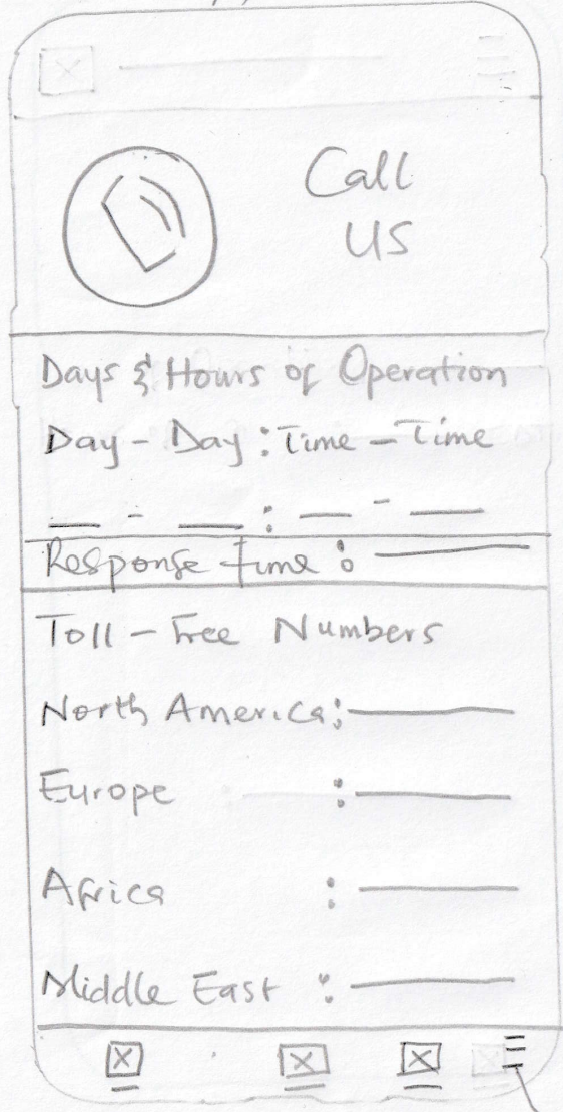 Call
US
Days & Hours of Operation
Day - Day : Time - Time
Response time :
Toll - Free Numbers
North America :
Europe :
Africa :
Middle East :